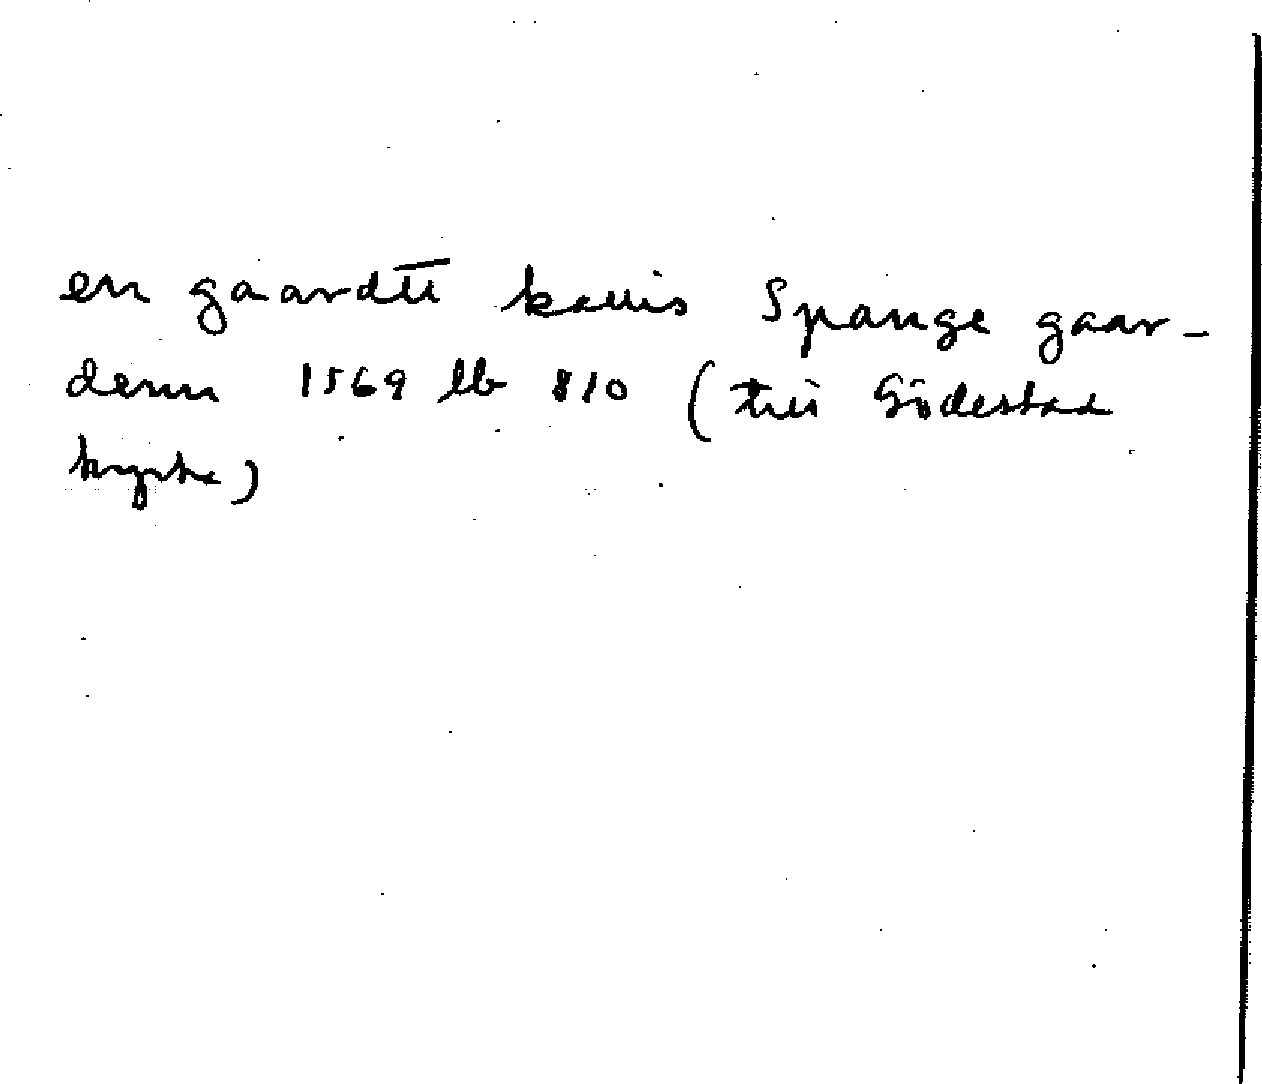 en gaardtt kallis Spange gaar-
denn 1569 lb 810 (till Gödestad
kyrke)